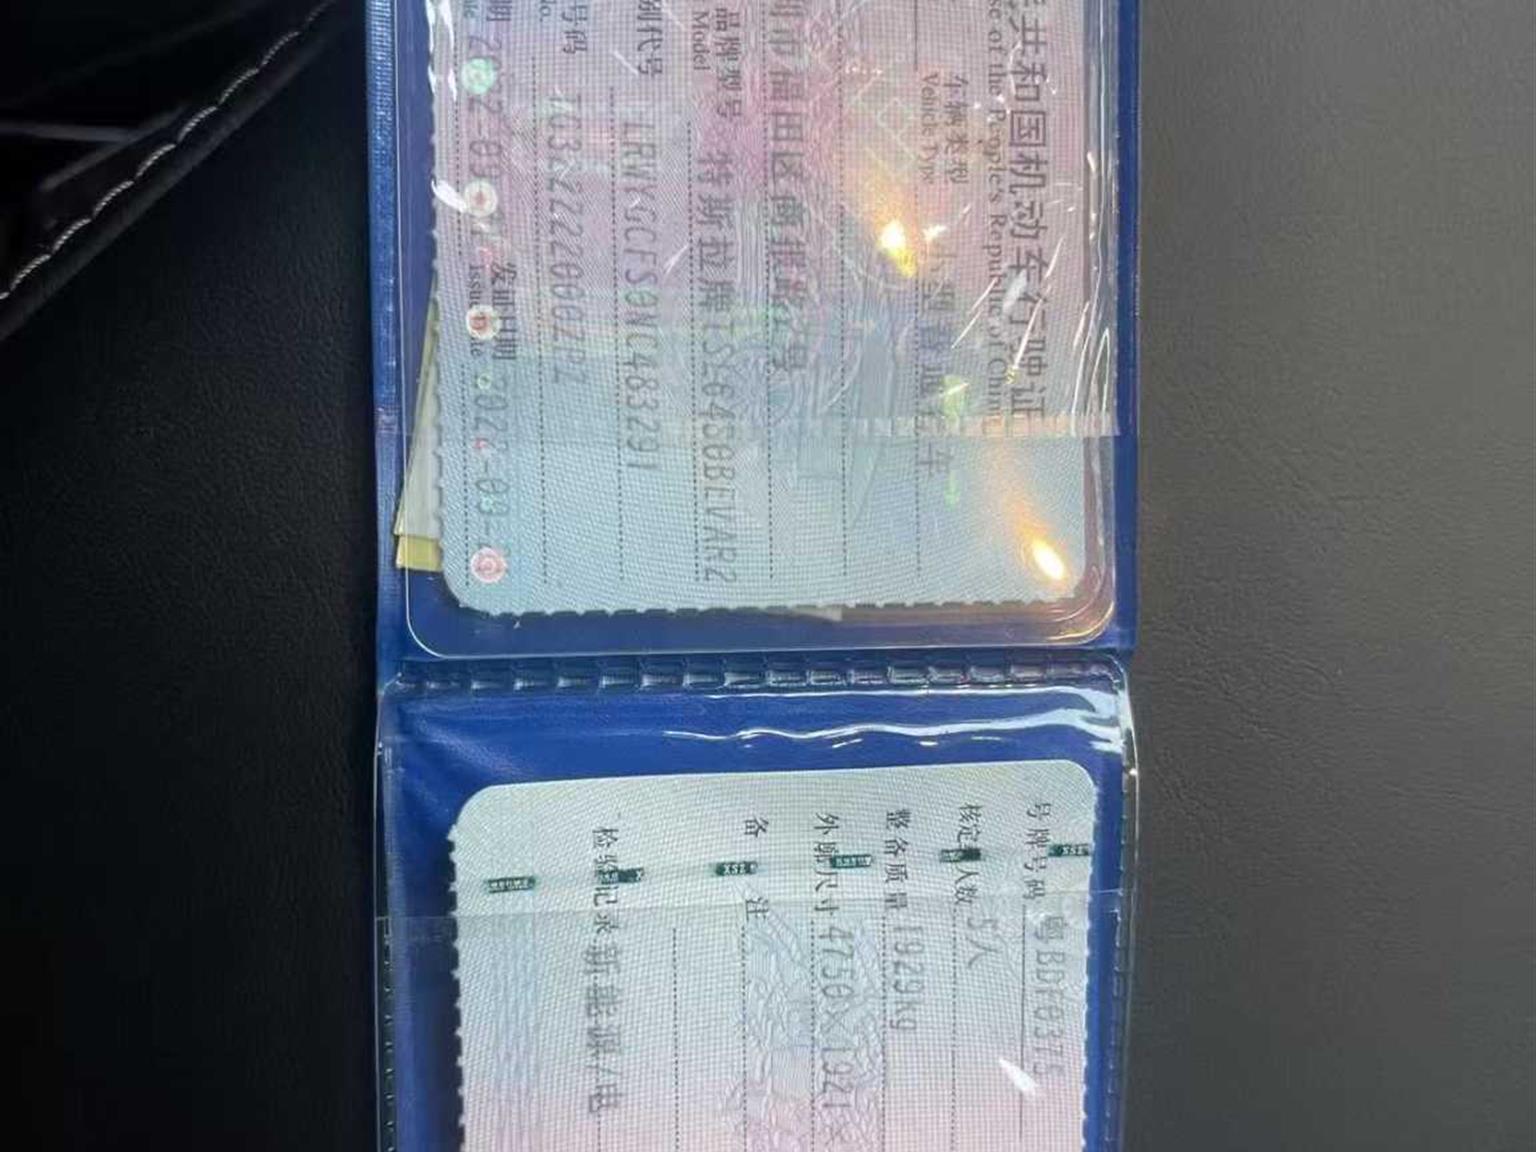 共和国机动车行驶证
se of the People's Republic of China
车辆类型
Vehicle Type
小型普通客车
市福田区商报路2号
品牌型号
Model
特斯拉牌TSL6450BEVAR2
代号
LRWYGCFS0NC483291
号码
No.
TG322220002PZ
发证日期
Issue Date
号牌号码 粤BDF0375
核定 人数 5人
整备质量 1929kg
外廓尺寸 4750×1921×
备 注
检验记录 新能源/电